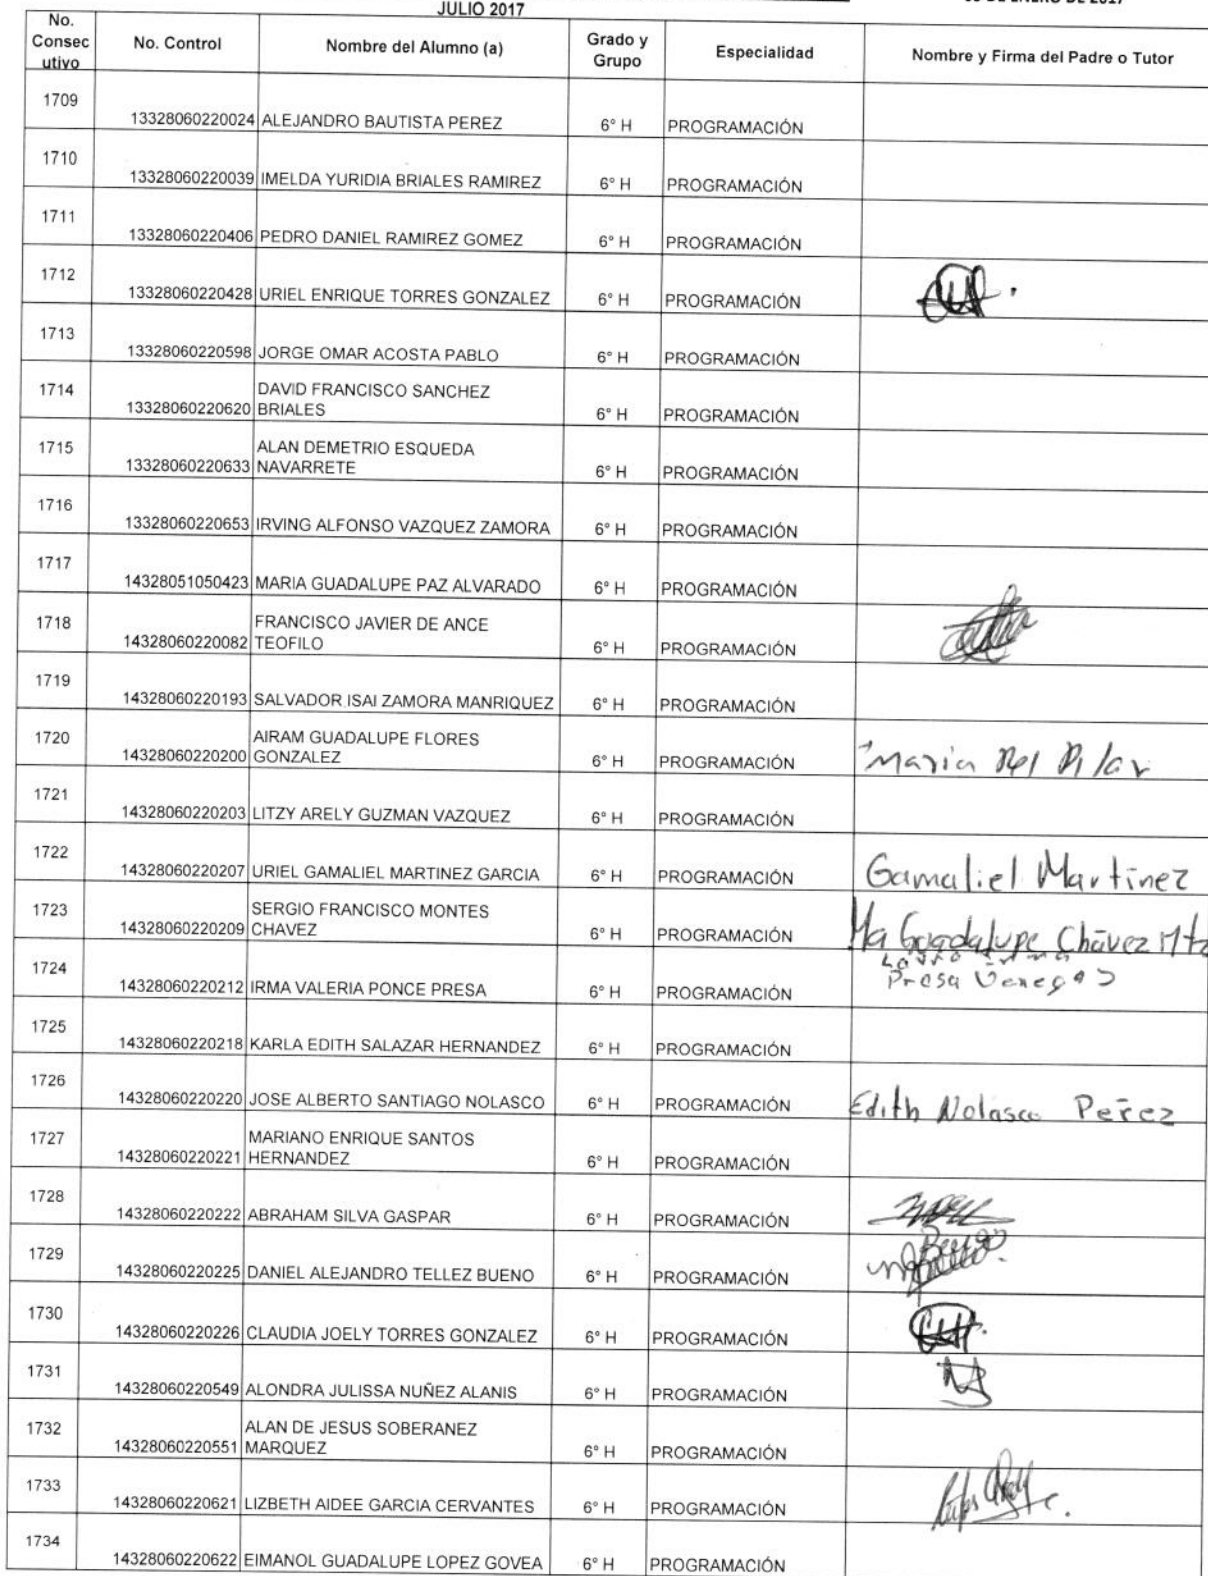 JULIO 2017
No. Consecutivo No. Control Nombre del Alumno (a) Grado y Grupo Especialidad Nombre y Firma del Padre o Tutor
1709 13328060220024 ALEJANDRO BAUTISTA PEREZ 6° H PROGRAMACIÓN
1710 13328060220039 IMELDA YURIDIA BRIALES RAMIREZ 6° H PROGRAMACIÓN
1711 13328060220406 PEDRO DANIEL RAMIREZ GOMEZ 6° H PROGRAMACIÓN
1712 13328060220428 URIEL ENRIQUE TORRES GONZALEZ 6° H PROGRAMACIÓN
1713 13328060220598 JORGE OMAR ACOSTA PABLO 6° H PROGRAMACIÓN
1714 13328060220620 DAVID FRANCISCO SANCHEZ BRIALES 6° H PROGRAMACIÓN
1715 13328060220633 ALAN DEMETRIO ESQUEDA NAVARRETE 6° H PROGRAMACIÓN
1716 13328060220653 IRVING ALFONSO VAZQUEZ ZAMORA 6° H PROGRAMACIÓN
1717 14328051050423 MARIA GUADALUPE PAZ ALVARADO 6° H PROGRAMACIÓN
1718 14328060220082 FRANCISCO JAVIER DE ANCE TEOFILO 6° H PROGRAMACIÓN
1719 14328060220193 SALVADOR ISAI ZAMORA MANRIQUEZ 6° H PROGRAMACIÓN
1720 14328060220200 AIRAM GUADALUPE FLORES GONZALEZ 6° H PROGRAMACIÓN Maria Del Pilar
1721 14328060220203 LITZY ARELY GUZMAN VAZQUEZ 6° H PROGRAMACIÓN
1722 14328060220207 URIEL GAMALIEL MARTINEZ GARCIA 6° H PROGRAMACIÓN Gamaliel Martinez
1723 14328060220209 SERGIO FRANCISCO MONTES CHAVEZ 6° H PROGRAMACIÓN Ma Guadalupe Chávez Mtz
1724 14328060220212 IRMA VALERIA PONCE PRESA 6° H PROGRAMACIÓN Presa Venegas
1725 14328060220218 KARLA EDITH SALAZAR HERNANDEZ 6° H PROGRAMACIÓN
1726 14328060220220 JOSE ALBERTO SANTIAGO NOLASCO 6° H PROGRAMACIÓN Edith Nolasco Perez
1727 14328060220221 MARIANO ENRIQUE SANTOS HERNANDEZ 6° H PROGRAMACIÓN
1728 14328060220222 ABRAHAM SILVA GASPAR 6° H PROGRAMACIÓN
1729 14328060220225 DANIEL ALEJANDRO TELLEZ BUENO 6° H PROGRAMACIÓN
1730 14328060220226 CLAUDIA JOELY TORRES GONZALEZ 6° H PROGRAMACIÓN
1731 14328060220549 ALONDRA JULISSA NUÑEZ ALANIS 6° H PROGRAMACIÓN
1732 14328060220551 ALAN DE JESUS SOBERANEZ MARQUEZ 6° H PROGRAMACIÓN
1733 14328060220621 LIZBETH AIDEE GARCIA CERVANTES 6° H PROGRAMACIÓN
1734 14328060220622 EIMANOL GUADALUPE LOPEZ GOVEA 6° H PROGRAMACIÓN